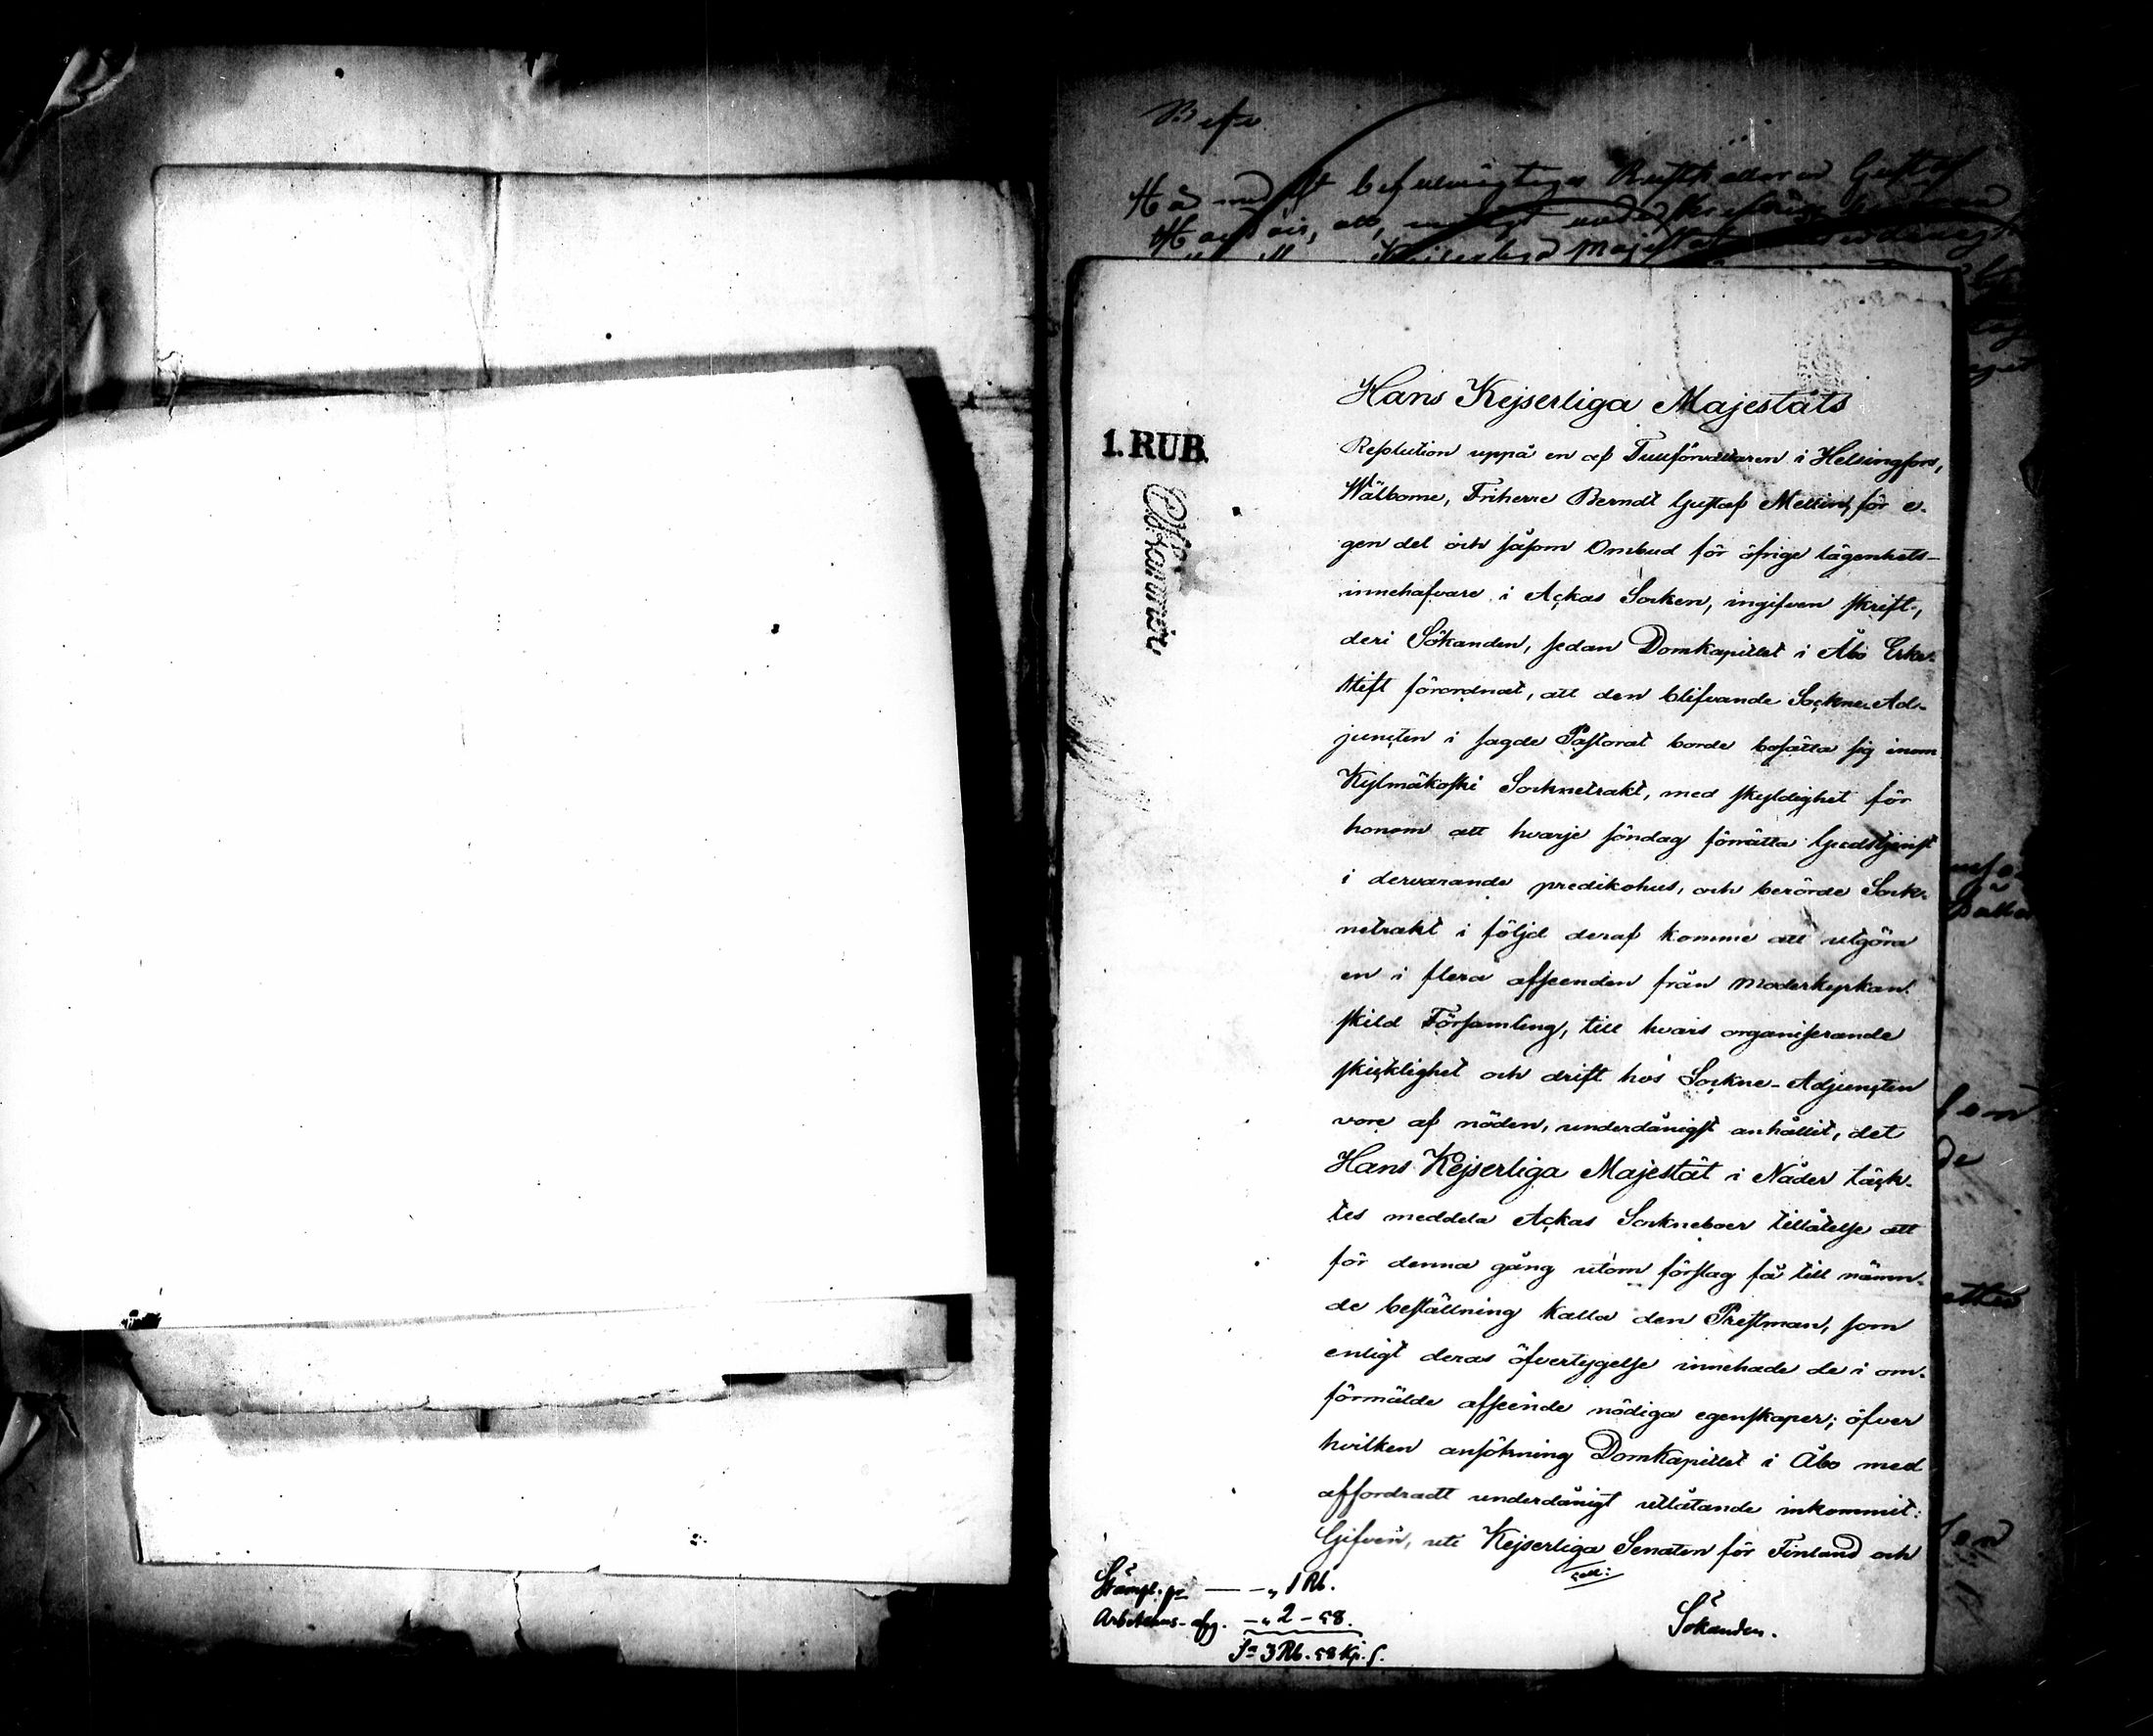 Hans Kejserliga Majestäts
Resolution uppå en af Tullförvaltaren i Helsingfors,
Wälborne, Friherre Berndt Gustaf Mellin, för e-
gen del och såsom Ombud för öfrige lägenhets-
innehafvare i Ackas Socken, ingifven skrift,
deri Sökanden, sedan Domkapitlet i Åbo Erke-
stift förordnat, att den blifvande Sockne-Ad-
juncten i sagde Pastorat borde bosätta sig inom
Kylmäkoski Socknetrakt, med skyldighet för
honom att hvarje söndag förrätta Gudstjenst
i dervarande predikohus, och berörde Sock-
netrakt i följd deraf komme att utgöra
en i flera afseenden från Moderkyrkan
skild Församling, till hvars organiserande
skicklighet och drift hos Sockne-Adjuncten
vore af nöden, underdånigst anhållit, det
Hans Kejserliga Majestät i Nåder täck-
tes meddela Ackas Sockneboer tillåtelse att
för denna gång utom förslag få till nämn-
de beställning kalla den Prestman, som
enligt deras öfvertygelse innehade de i om-
förmälde afseende nödiga egenskaper; öfver
hvilken ansökning Domkapitlet i Åbo med
affordradt underdånigt utlåtande inkommit:
Gifven, uti Kejserliga Senaten för Finland och
coll:
Sökanden.
1. RUB.
Stämpl. pr — — „ 1 Rb.
Arbetshus-afg. — „ 2 - 58.
Sa 3 Rb. 58 Kp. S.
Kejserliga Majestät